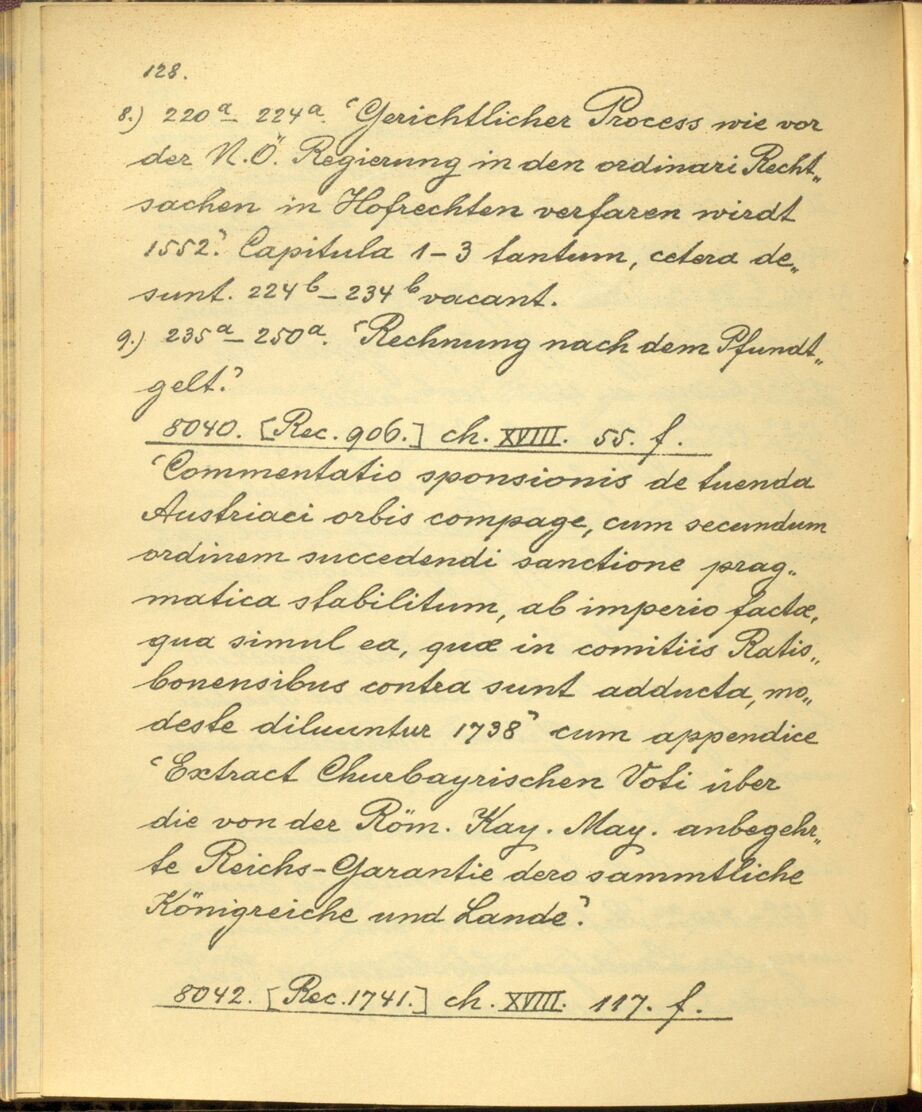 128.
8.) 220a – 224a. ‘Gerichtlicher Process wie vor
der N. Ö. Regierung in den ordinari Recht„
sachen in Hofrechten verfaren wirdt
1552’. Capitula 1–3 tantum, cetera de„
sunt. 224b – 234b vacant.
9.) 235a – 250a. ‘Rechnung nach dem Pfundt„
gelt.’
8040. [Rec. 906.] ch. XVIII. 55. f.
‘Commentatio sponsionis de tuenda
Austriaci orbis compage, cum secundum
ordinem succedendi sanctione prag„
matica stabilitum, ab imperio factæ,
qua simul ea, quæ in comitiis Ratis„
bonensibus contra sunt adducta, mo„
deste diluuntur 1738’ cum appendice
‘Extract Churbayrischen Voti über
die von der Röm. Kay. May. anbegehr„
te Reichs-Garantie dero sammtliche
Königreiche und Lande’.
8042. [Rec. 1741.] ch. XVIII. 117. f.